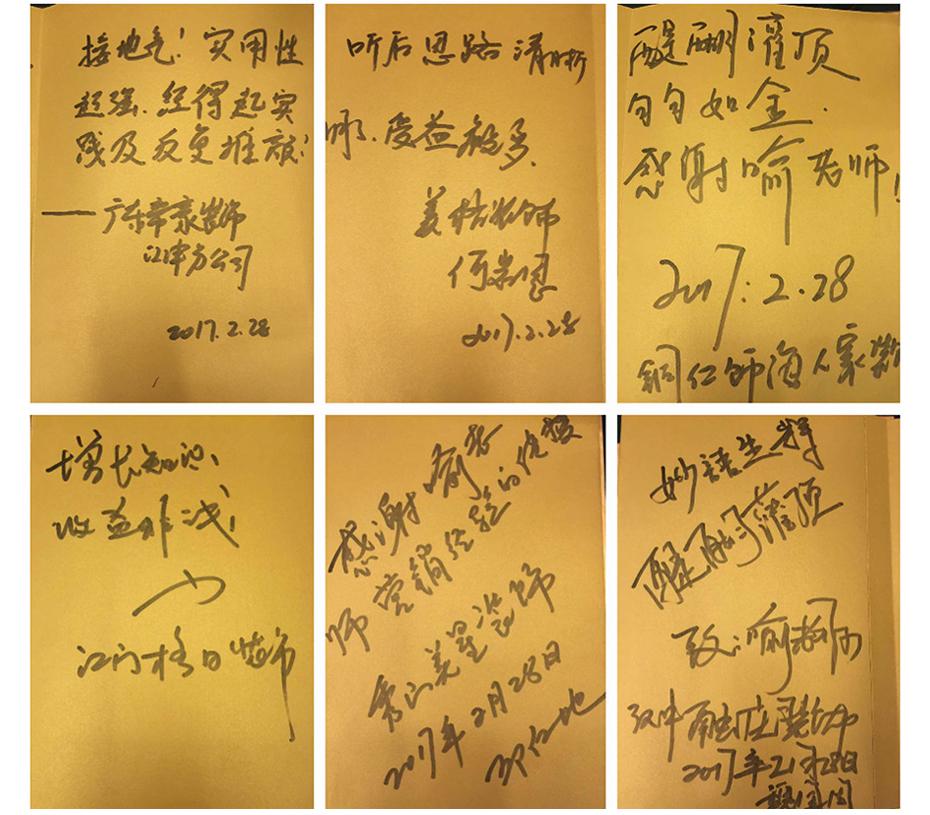 接地气！实用性
超强、经得起实
践及反复推敲！
——广东帝豪装饰
江中分公司
2017.2.28
听后思路清晰
啊、受益颇多、
美格装饰
何崇恩
2017.2.28
醍醐灌顶
句句如金.
感谢喻老师！
2017:2.28
铜仁师海人家装
增长知识、
收益非浅！
江门格日装饰
感谢喻老
师 营销经验的传授
秀山美星装饰
2017年2月28日
妙语生辉
醍醐灌顶
致：喻老师
汉中
2017年2月28日